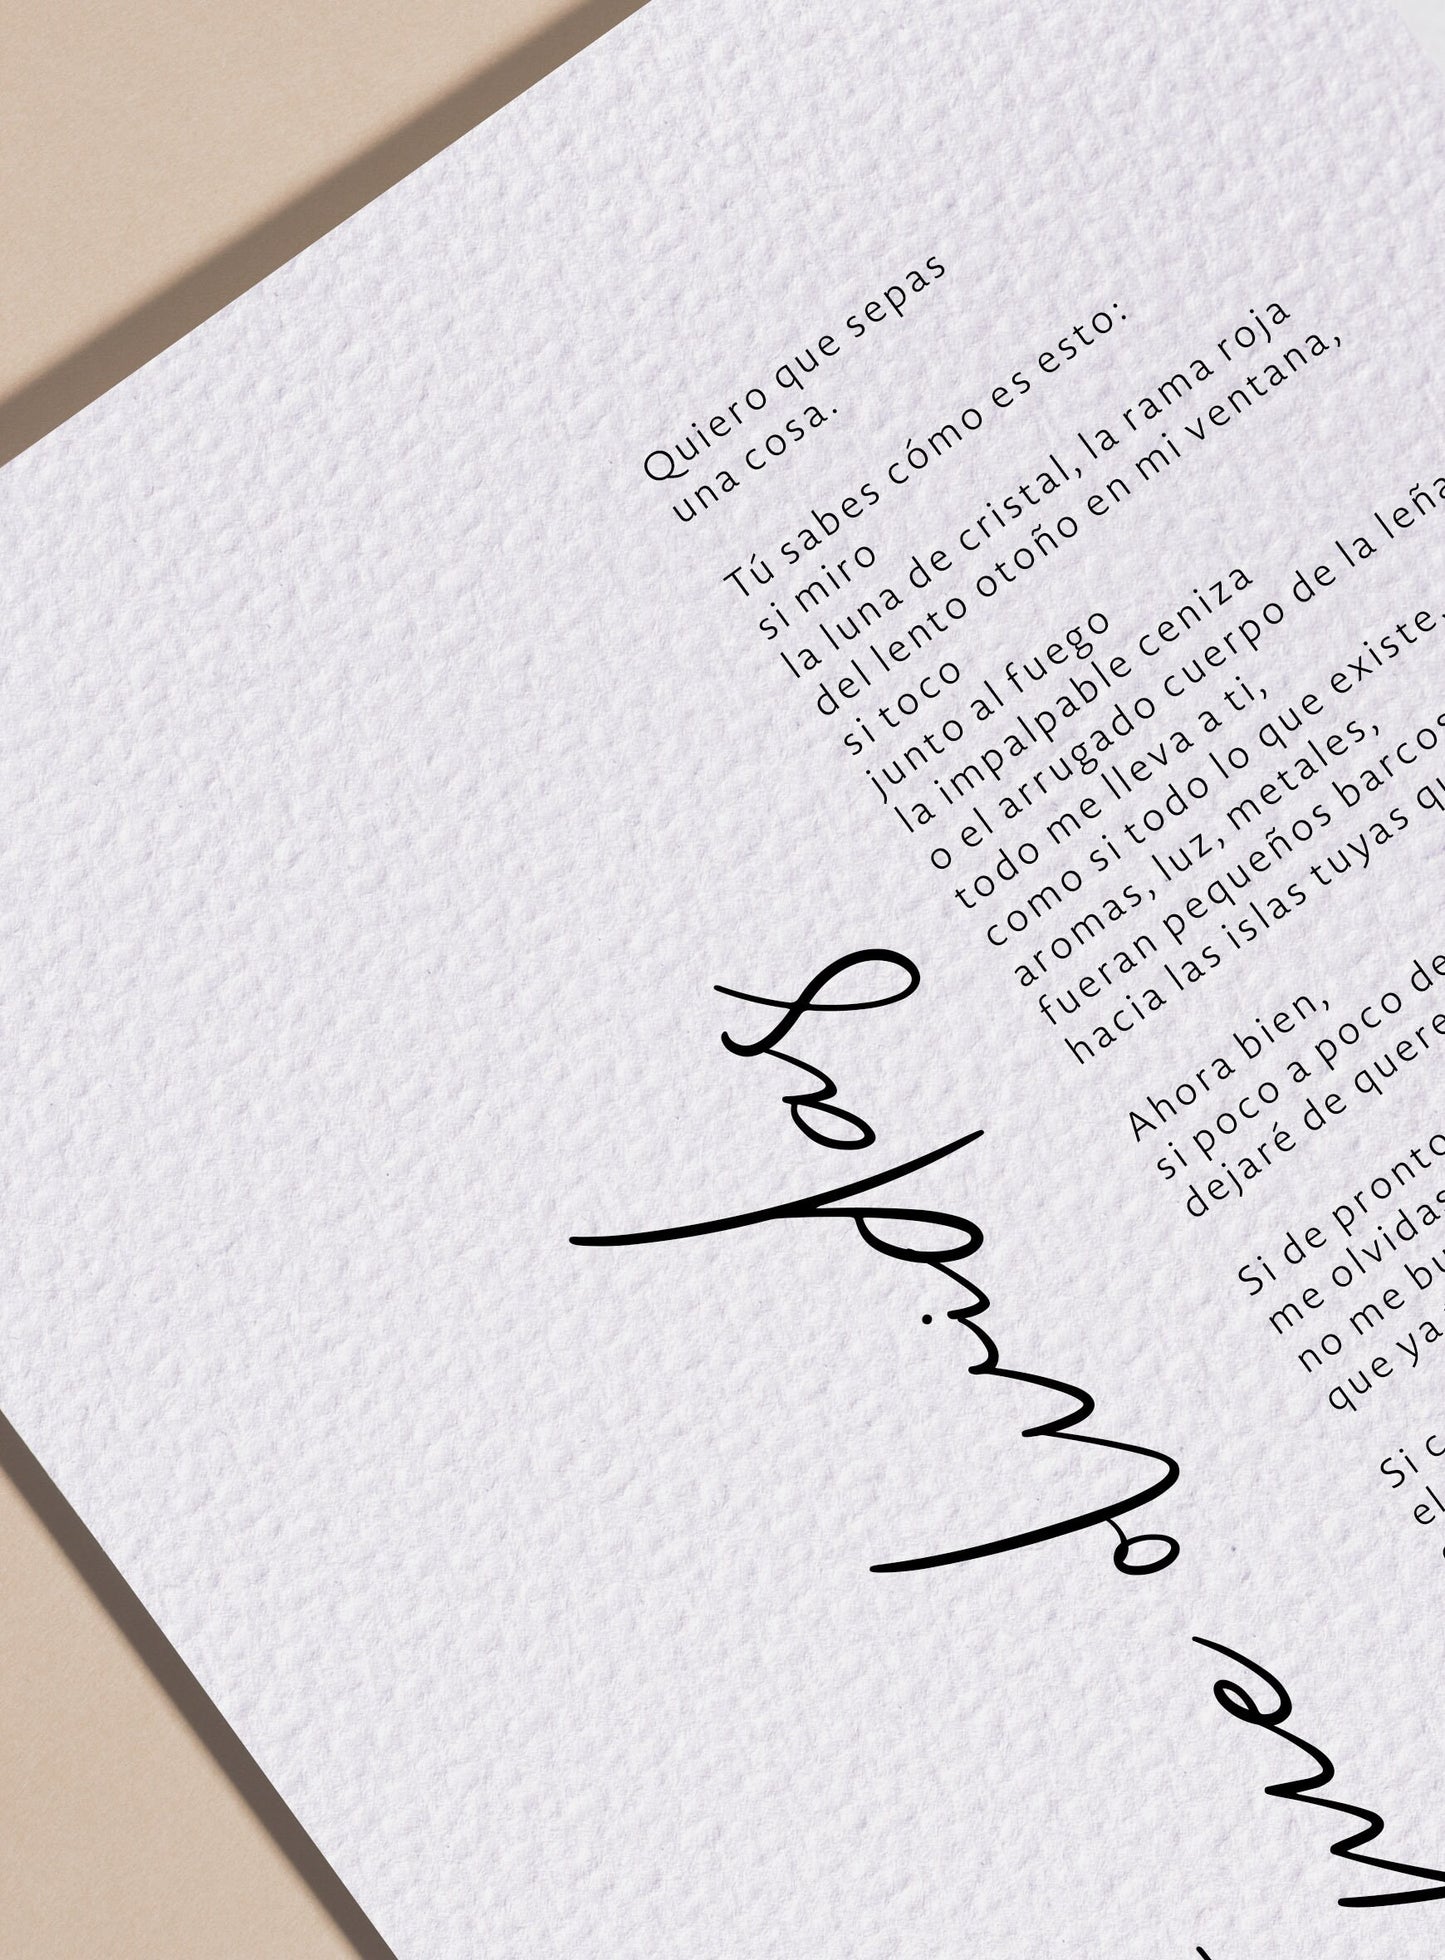 me olvidas
Quiero que sepas
una cosa.
Tú sabes cómo es esto:
si miro
la luna de cristal, la rama roja
del lento otoño en mi ventana,
si toco
junto al fuego
la impalpable ceniza
o el arrugado cuerpo de la leña
todo me lleva a ti,
como si todo lo que existe,
aromas, luz, metales,
fueran pequeños barcos
hacia las islas tuyas qu
Ahora bien,
si poco a poco de
dejaré de quere
Si de pronto
me olvidas
no me bu
que ya
Si c
el